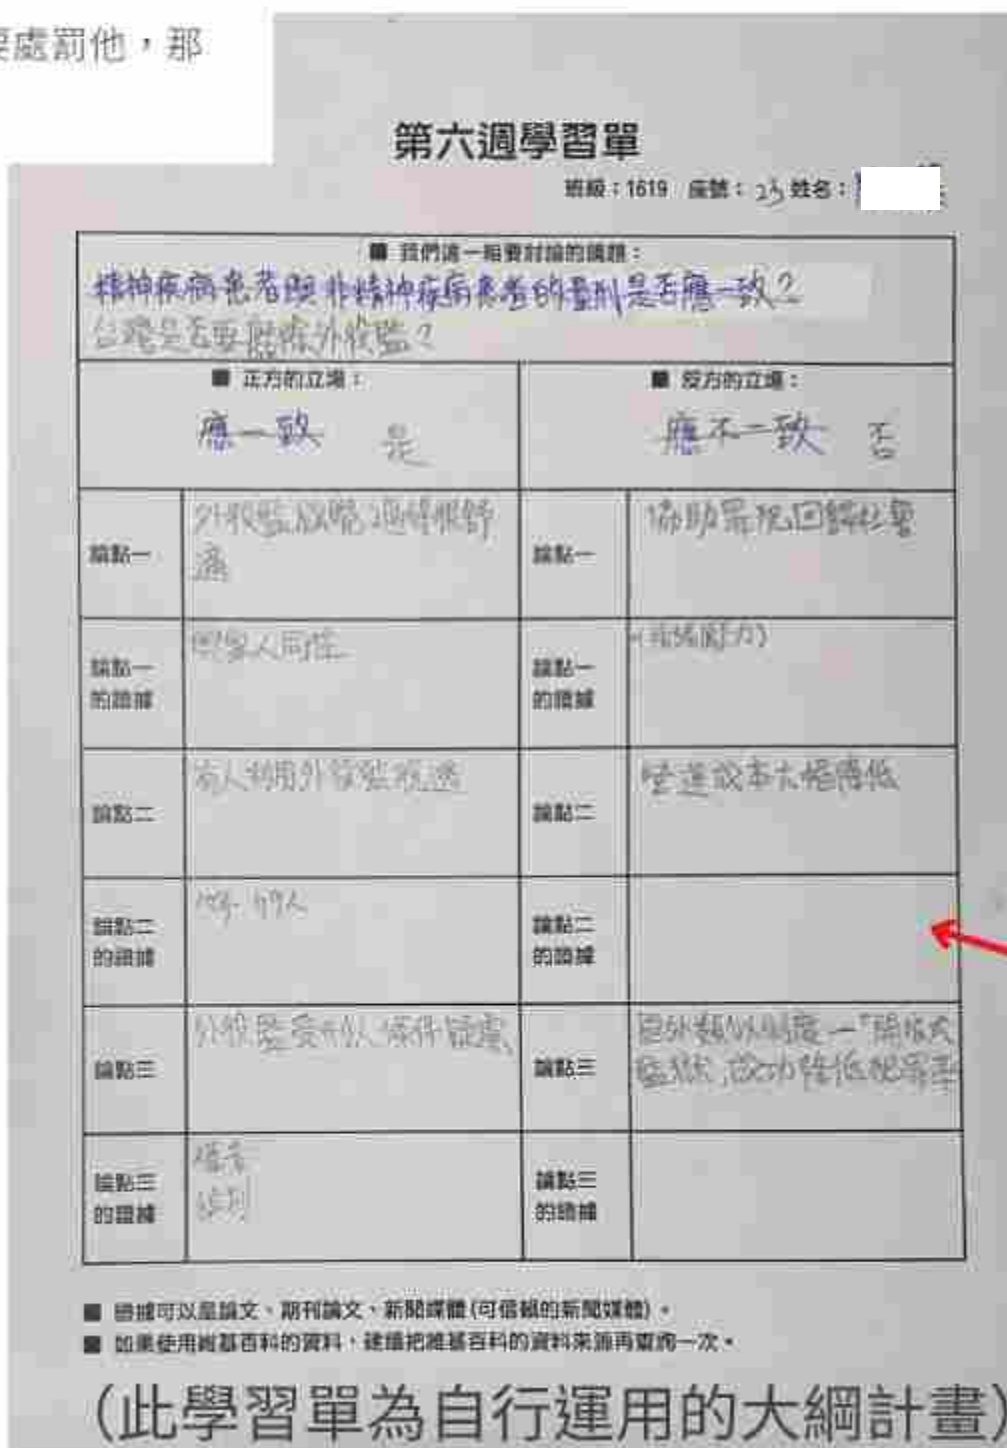 要處罰他，那
第六週學習單
班級：1619 座號：23 姓名：
■ 我們這一組要討論的議題：
精神疾病患者與非精神疾病患者的量刑是否應一致？
台灣是否要廢除外役監？
■ 正方的立場：
應一致 是
■ 反方的立場：
應不一致 否
論點一
外役監放鬆
適
論點一
協助罪犯回歸社會
論點一
的證據
論點一
的證據
論點二
有人利用外役監脫逃
論點二
營運成本大幅降低
論點二
的證據
論點二
的證據
論點三
外役監受刑人條件疑慮
論點三
國外類似制度—「開放式
監獄」成功降低犯罪率
論點三
的證據
論點三
的證據
■ 證據可以是論文、期刊論文、新聞媒體(可信賴的新聞媒體)。
■ 如果使用維基百科的資料，建議把維基百科的資料來源再查詢一次。
(此學習單為自行運用的大綱計畫)